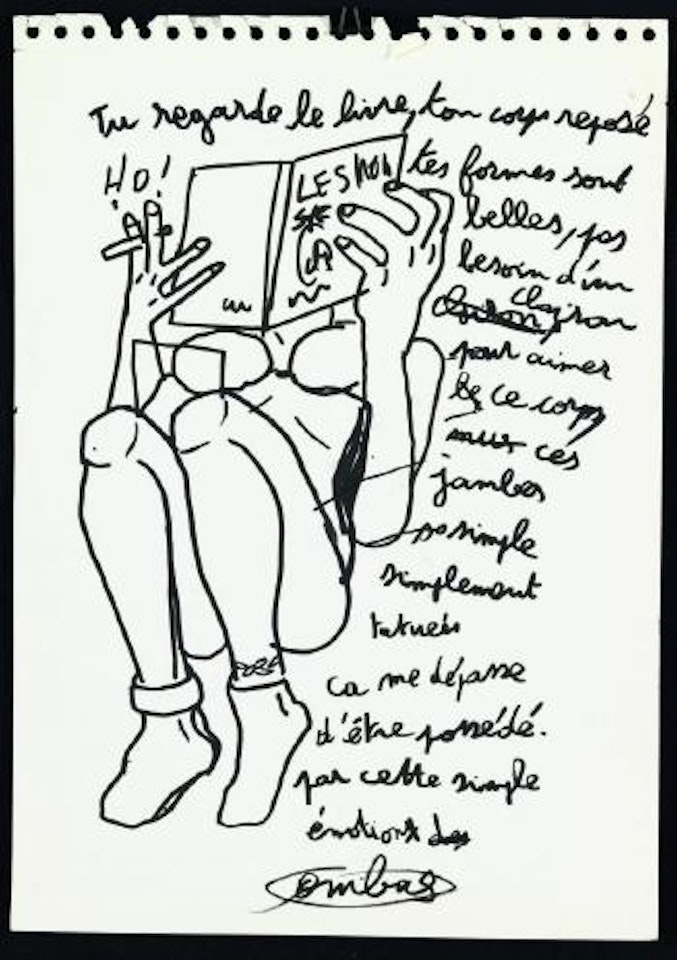 Tu regarde le livre, ton corps reposé
HO!
LES
tes formes sont
belles, pas
besoin d'un
clayson
pour aimer
ce corps
ces
jambes
simple
simplement
tatués
ca me dépasse
d'être possédé.
par cette simple
émotion
ombas